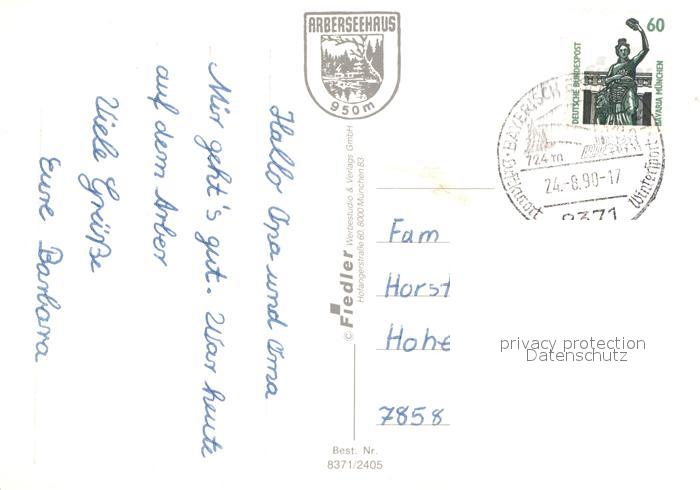 ARBERSEEHAUS
950m
Hallo Opa und Oma
Mir geht's gut. War heute
auf dem Arber
Viele Grüße
Eure Barbara
© Fiedler Werbestudio & Verlags GmbH
Hofangerstraße 60, 8000 München 83
Best. Nr.
8371/2405
60
DEUTSCHE BUNDESPOST
BAVARIA MÜNCHEN
BAYERISCH
724 m
24.-8.90-17
Wintersport
8371
Fam
Horst
Hohe
7858
privacy protection
Datenschutz